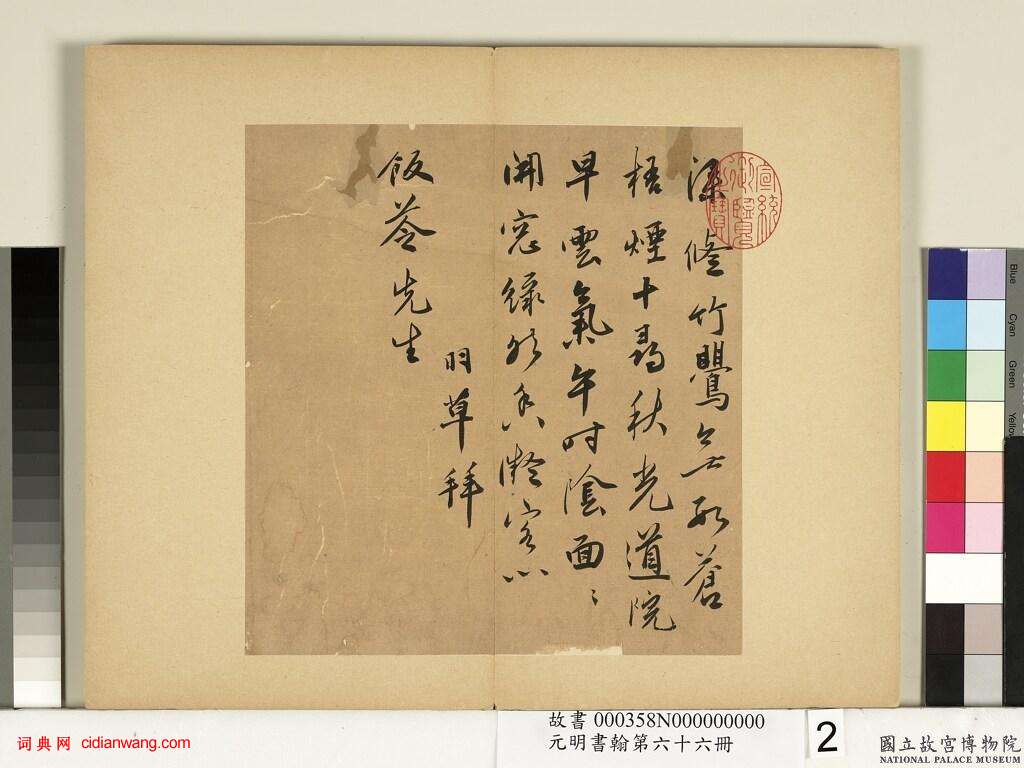 深修竹鸎無蒼
梧煙十尋秋光道院
早雲氣午時陰面〻
開窓緑凝客心
草拜
飯苓先生
宣統
御覽
之寶
Blue
Cyan
Green
Yellow
故書 000358N000000000
元明書翰第六十六冊
2
國立故宮博物院
NATIONAL PALACE MUSEUM
词典网 cidianwang.com